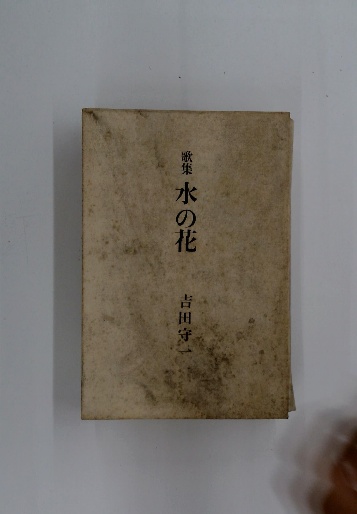 歌集 水の花
吉田守一